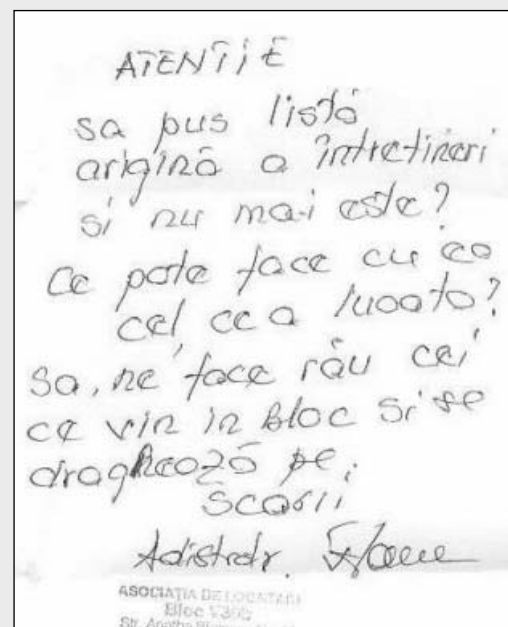 ATENTIE
sa pus listă
arigină a întretineri
si nu mai este?
Ce pote face cu eo
cel, ce a luoato?
Sa, ne face rău cei
ce vin in Bloc si se
droghează pe,
Scorii
Adistrdr.
ASOCIAȚIA DE LOCATARI
Bloc
Str.